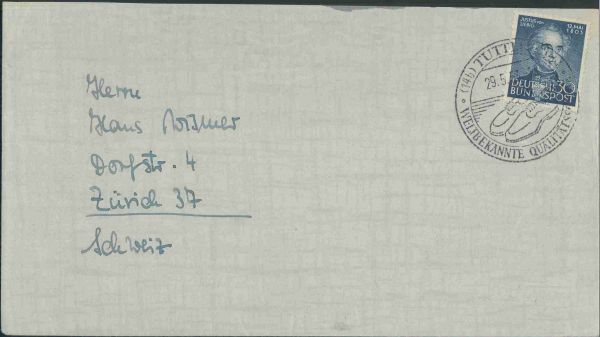 Herrn
Hans
Dorfstr. 4
Zürich 37
Schweiz
JUSTUS VON LIEBIG
12. MAI 1803
30
DEUTSCHE BUNDESPOST
(14b) TUTTL
29.5.
WELTBEKANNTE QUALITÄTS